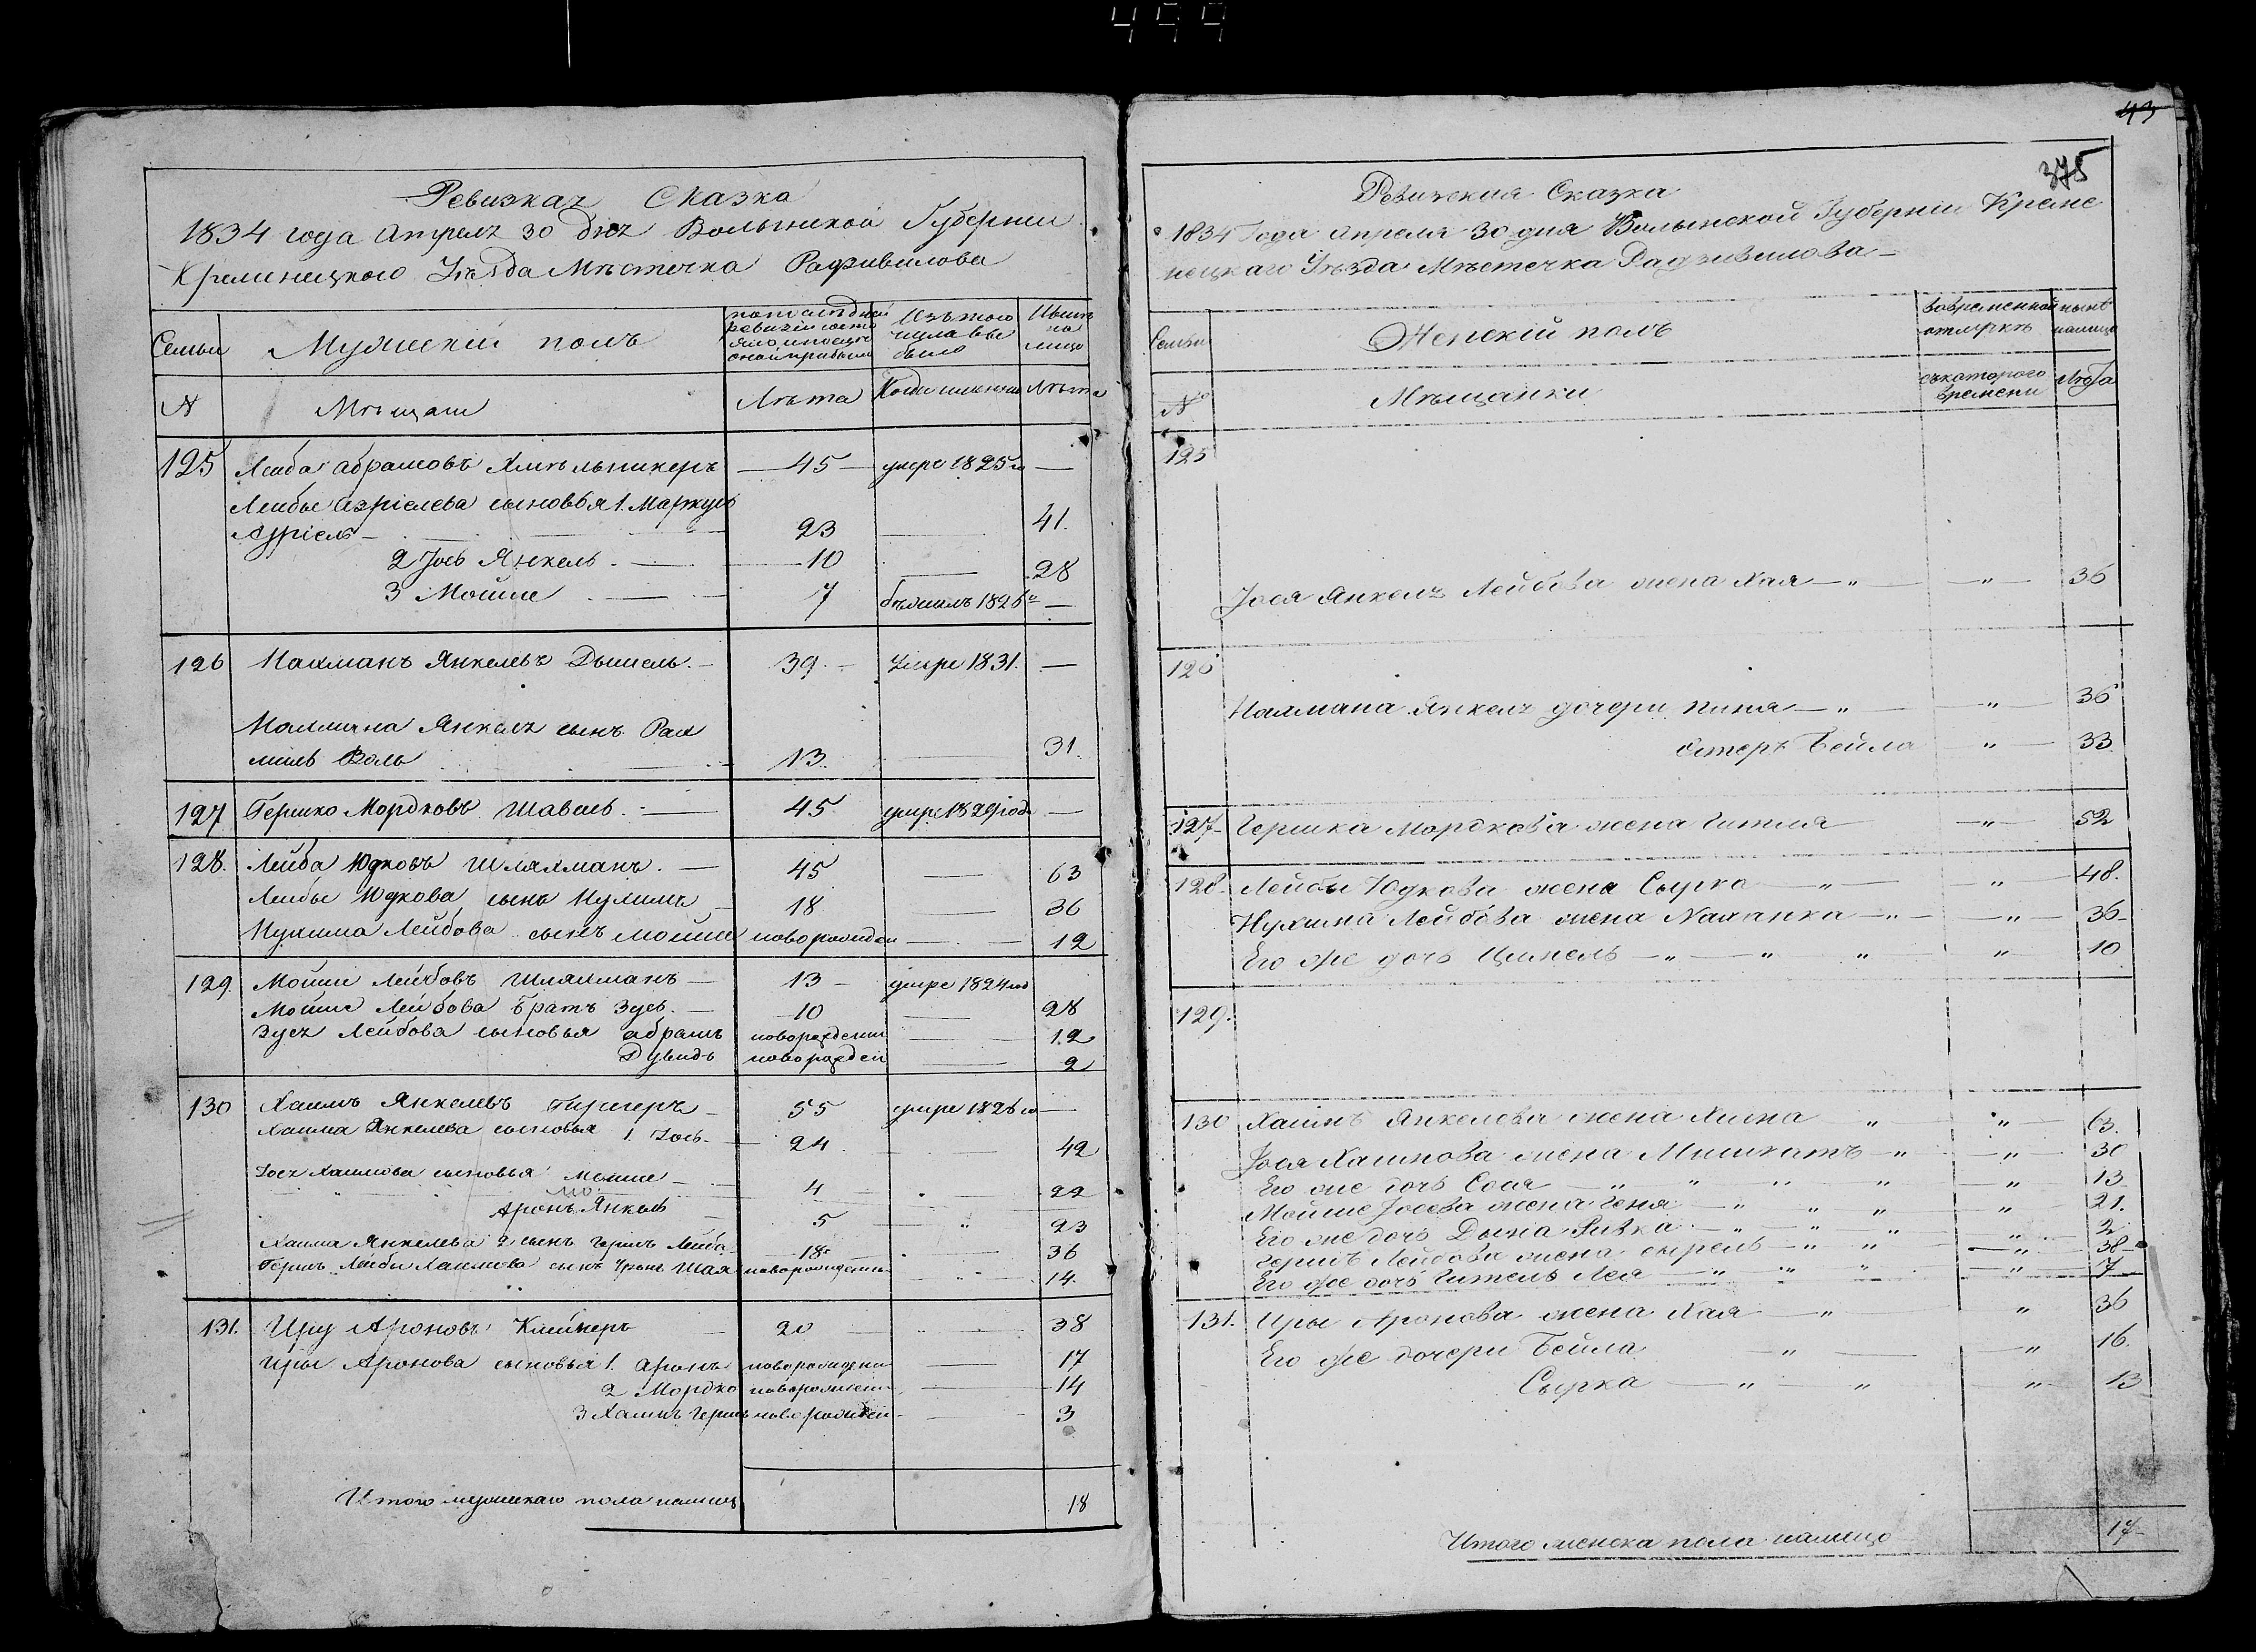 499
Ревизкая Сказка
1834 года Апреля 30 дня Волынской Губернии
Кременецкого Уѣзда Мѣстечка Радзивилова
Семьи
Мужеский полъ
Изъ того числа вы было
Нынѣ на лицо
N
Мѣщане
Лѣта
Когда именно
Лѣта
125 Лейба Абрамовъ Хмѣльникеръ — 45 — умре 1825 го —
Лейбы Азріелева сыновья 1. Маркусъ
Азріель — 23 — 41.
2 Іось Янкель — 10 — 28
3 Мошие — 7 бѣжилъ 1826 го —
126 Нахманъ Янкелевъ Дышель. — 39. — Умре 1831. —
Нахмана Янкеля сынъ Рах
миль Воль 13. — 31.
127 Гершко Мордковъ Шаваль. — 45 умре 1829 года —
128. Лейба Юдковъ Шляхманъ. — 45 — 63
Лейбы Юдкова сынъ Нухимъ — 18 — 36
Нухима Лейбова сынъ Мошие новорожден — 12
129. Мошие Лейбовъ Шляхманъ — 13 — умре 1824 год
Мошие Лейбова братъ Зусь. — 10 — 28
Зуся Лейбова сыновья Абрамъ новорожден — 12
Дувидъ новорожден — 2
130 Хаимъ Янкелевъ — 55 умре 1826 го —
Хаима Янкелева сыновья 1. Іось. — 24 — 42
Іося Хаимова сыновья Мошие — 4 — 22
Аронъ Янкель — 5 — " — 23
Хаима Янкелева 2. сынъ Гершъ Лейба — 18 — 36
Гершъ Лейбы Хаимова сынъ Шая новорожденъ — 14.
131. Иру Ароновъ Клейнеръ — 20 — 38
Иры Аронова сыновья 1. Аронъ новорожден — 17
2 Мордко новорожден — 14
3 Хаимъ Гершъ новорожден — 3
Итого мужескаго пола налицо 18
43
375
Ревизская Сказка
1834 Года Апреля 30 дня Волынской Губерніи Креме
нецкаго Уѣзда Мѣстечка Радзивилова —
Семьи
Женскій полъ
вовременной отлучкѣ
нынѣ налицо
N
Мѣщанки
съкаторого времени
Лѣта
125
Іося Янкеля Лейбова жена Хая — " — " — 36
126
Нахмана Янкеля дочери Пиня — " — " — 36
Эстеръ Бейла " — 33
127 Гершка Мордкова жена Гитля — " — 52
128. Лейбы Юдкова жена Сырка — " — " — 48.
Нухима Лейбова жена Хаханка — " — " — 36
Его же дочь Ципель — " — " " " 10
129.
130 Хаимъ Янкелева жена Хина " " — 63.
Іося Хаимова жена — " — " — 30
Его же дочь Сося — " " " " — " — 13
Мошие Іосева жена Геня — " " " " 21.
Его же дочь Двойра Ривка — " — " " " 2
Гершъ Лейбова жена Сырель — " " — " — 38
Его же дочь Гитель Лея — " — " " — " — 7
131. Иры Аронова жена Хая — " " 36
Его же дочери Бейла — " — " 16.
Сырка — " — " " — 13
Итого женска пола налицо 17